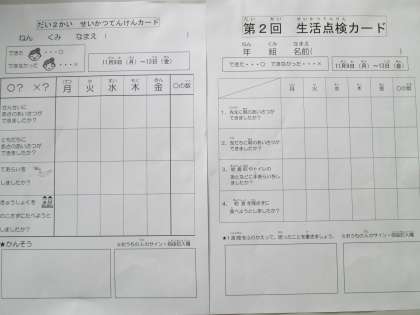 だい２かい　せいかつてんけんカード
ねん　くみ　なまえ（　　）
できた・・・○
できなかった・・・×
11月9日（月）～13日（金）
○？　×？　月　火　水　木　金　○の数
せんせいに
あさのあいさつが
できましたか？
ともだちに
あさのあいさつが
できましたか？
てあらいを
しましたか？
きゅうしょくを
のこさずにたべようと
しましたか？
★かんそう
第２回　生活点検カード
年　組　名前（　　）
できた・・・○　できなかった・・・×
11月9日（月）～13日（金）
月　火　水　木　金　○の数
1．先生に朝のあいさつが
できましたか？
2．友だちに朝のあいさつが
できましたか？
3．給食前やトイレの
あとなどに手あらいをし
ましたか？
4．給食を残さずに
食べようとしましたか？